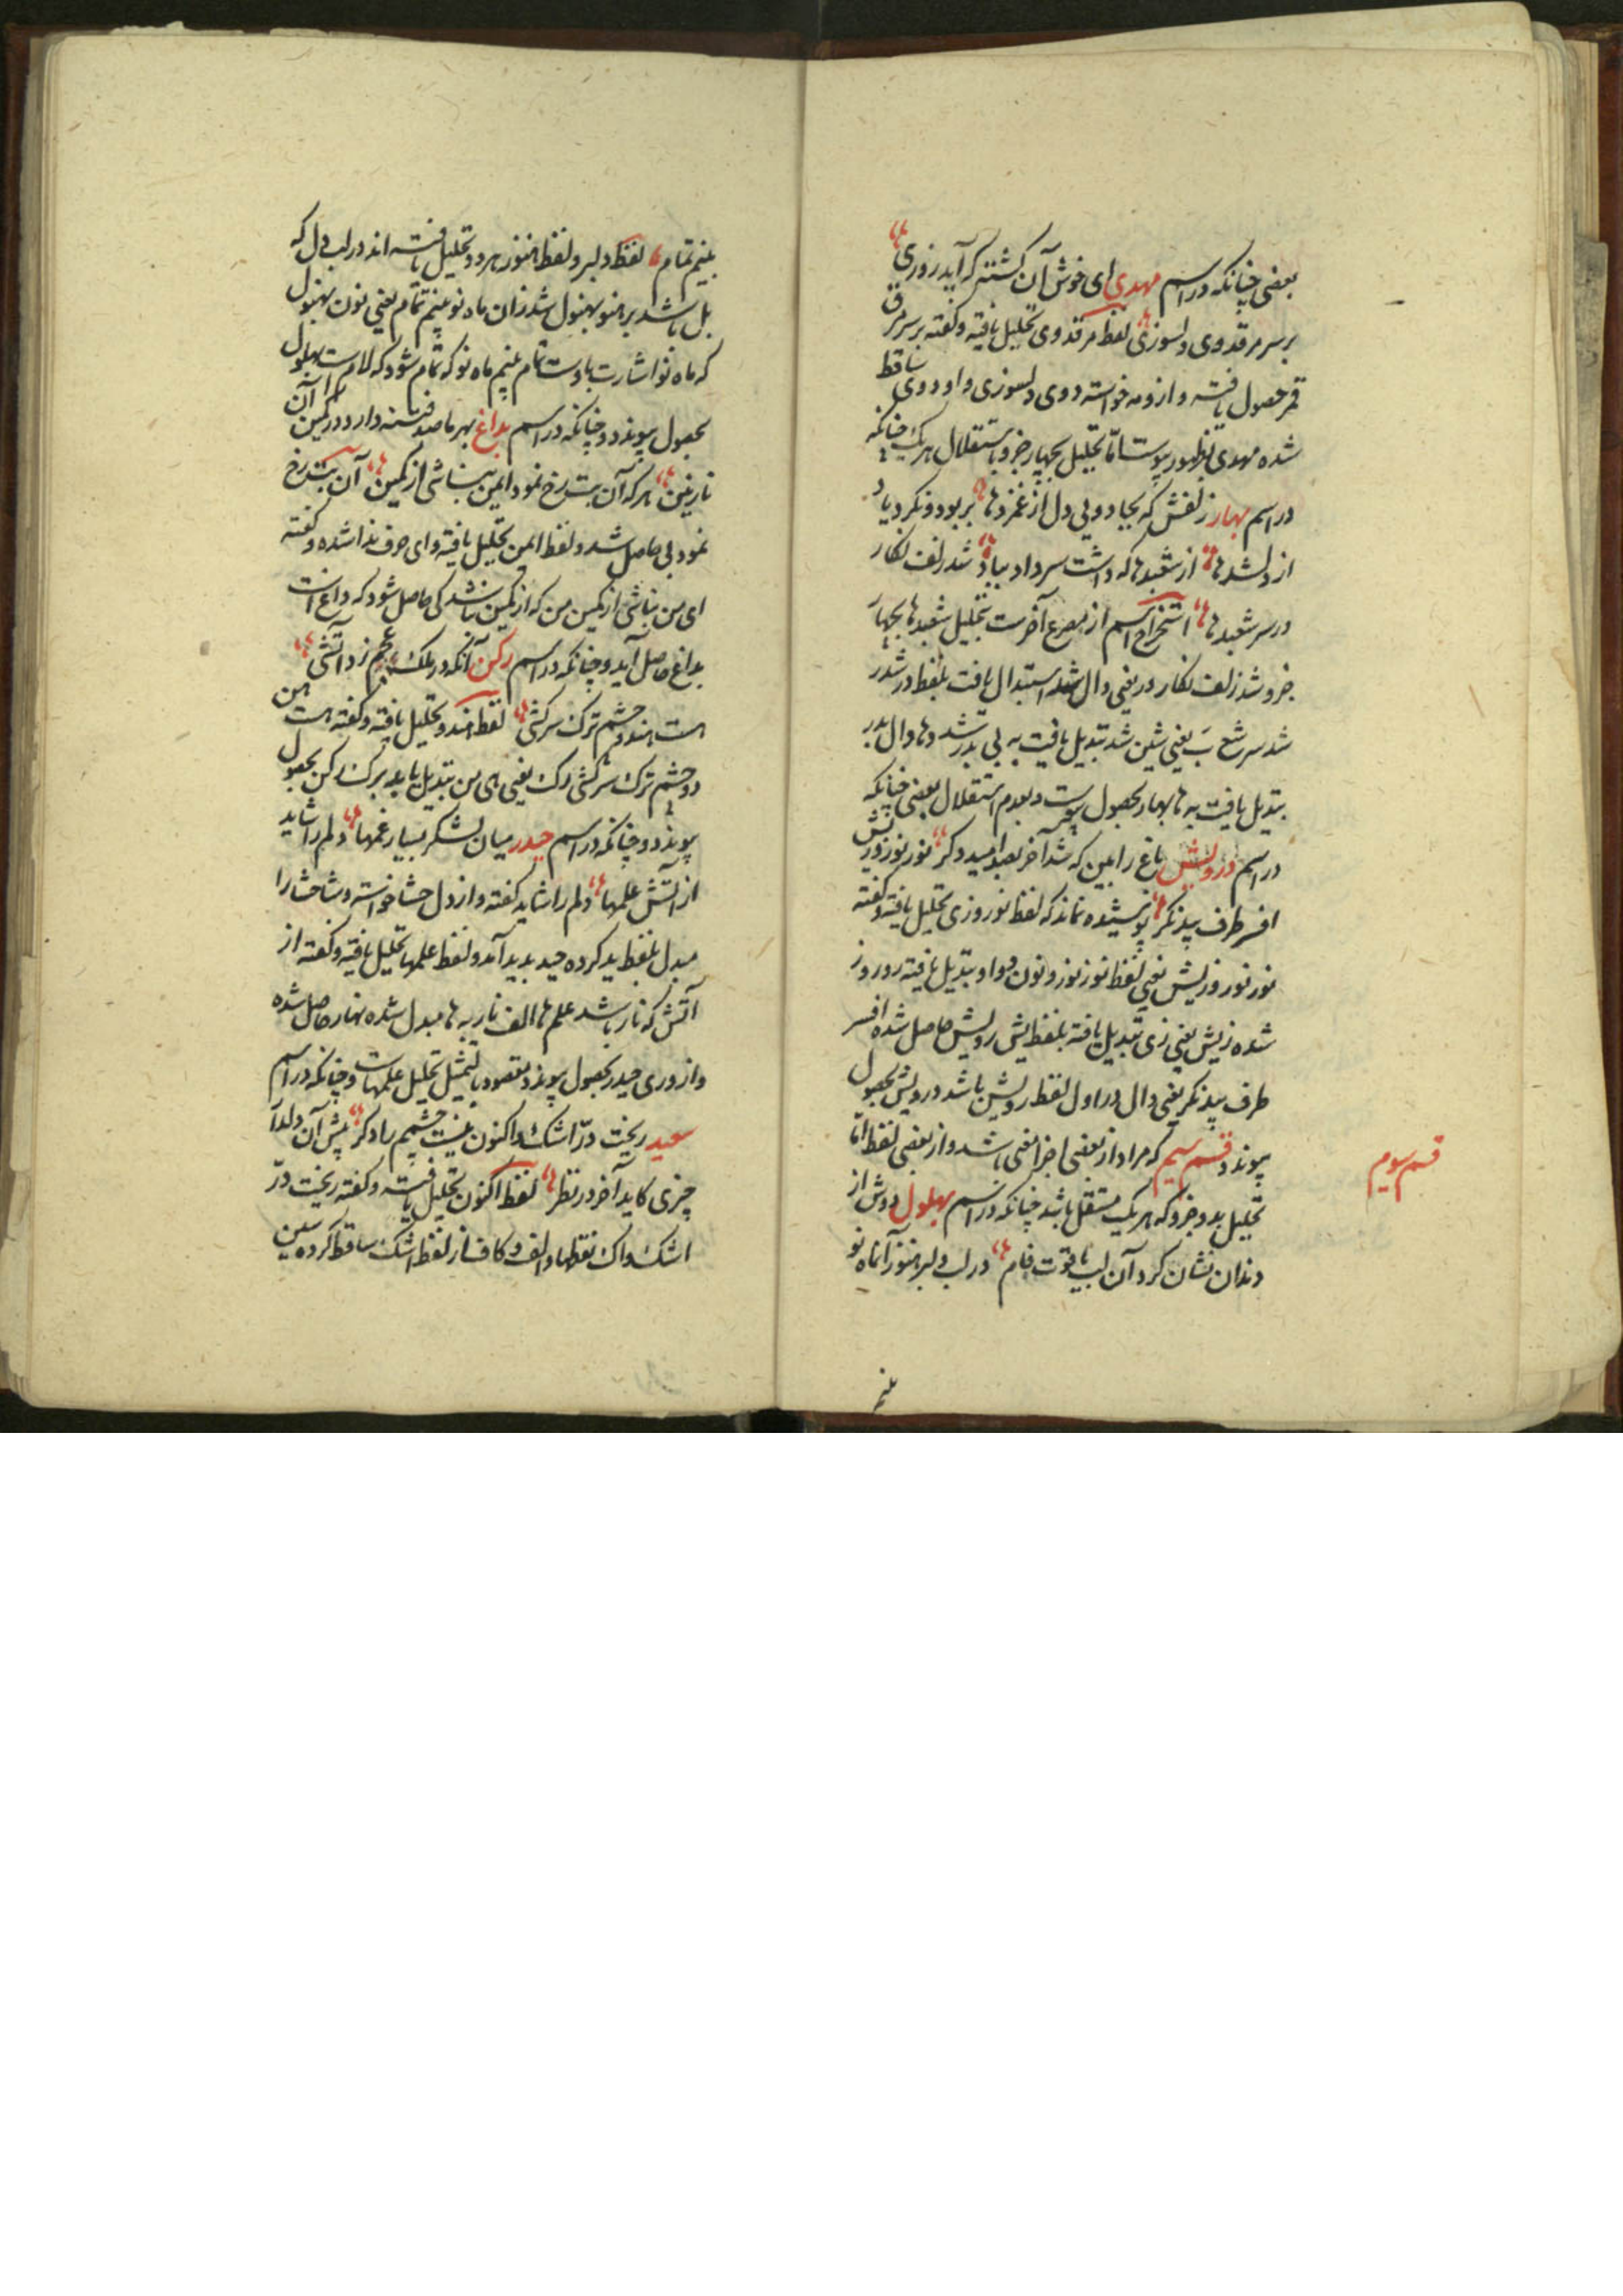 بعضی چنانکه در اسم مهدی ای خوش آن کشته که آید روزی
بر سر مرقد وی دلسوزی لفظ مرقد وی تحلیل یافته و گفته بر سر مرق
قمر حصول یافته و از ومه خواسته دوی دلسوزی واو دوی ساقط
شده مهدی بظهور پیوست اما تحلیل بچهار جزو باستقلال هر یک چنانکه
در اسم بهار زلفش که بجادویی دل از غمزدها بربود و نکرد یاد
از دلشدها از شعبدها که داشت سر داد بباد شد زلف نگار
در سر شعبدها استخراج اسم از مصرع آخرست بتحلیل شعبدها بچهار
جزو شد زلف نگار در یعنی دال شد استبدال یافت بلفظ در شدر
شد سر شع ب یعنی شین شد تبدیل یافت به بی بدر شد دها دال بدر
تبدیل یافت به ها بهار بحصول پیوست و بعدم استقلال بعضی چنانکه
در اسم درویش باغ را بین که شد آخر بصد امید دگر نور نوروزیش
افسر طرف بید نگر پوشیده نماند که لفظ نوروزی تحلیل یافته و گفته
نور نو روزیش یعنی لفظ نور نورو نون و واو تبدیل یافته رو روز
شده زیش یعنی زی تبدیل یافته بلفظ یش رویش حاصل شده افسر
طرف بید نگر یعنی دال در اول لفظ رویش باشد درویش بحصول
پیوندد قسم سیم که مراد از بعضی اجزا معنی باشد و از بعضی لفظ اما
قسم سوم
تحلیل بدو جزو که هر یک مستقل باشد چنانکه در اسم بهلول دوش از
دندان نشان کرد آن لب یاقوت فام در لب دلبر هنوز آن ماه نو
بینم
بینم تمام لفظ دلبر و لفظ هنوز هر دو تحلیل یافته اند در لب دل که
بل باشد بر هنو بهنول شد زان ماه نو بینم تمام یعنی نون بهنول
که ماه نو اشارت باوست تمام بینم ماه نو که تمام شود که لام ست بهلول
بحصول پیوندد و چنانکه در اسم بداغ بهر ما صد فتنه دارد در کمین آن
نازنین هر که آن بت رخ نمود ایمن نباشی از کمین آن بت رخ
نمود بی حاصل شد و لفظ ایمن تحلیل یافته و ای حرف ندا شده و گفته
ای من نباشی از کمین من که از کمین باشد کی حاصل شود که داغ است
بداغ حاصل آید و چنانکه در اسم رکن آنکه در ملک عجم زد آتشی
هست هندو چشم ترک سرکشی لفظ هندو تحلیل یافته و گفته هست هن
دو چشم ترک سرکشی رک یعنی های هن تبدیل یابد برک رکن بحصول
پیوندد و چنانکه در اسم حیدر میان لشکر بسیار غمها دلم را شاید
از آتش علمها دلم را شاید گفته و از دل حشا خواسته و شا حشا را
مبدل بلفظ ید کرده حید پدید آمد و لفظ علمها تحلیل یافته و گفته از
آتش که نار باشد علم ها الف نار به ها مبدل شده نهار حاصل شده
و از و ری حیدر بحصول پیوندد مقصود بالتمثیل تحلیل علمهاست و چنانکه در اسم
سعید ریخت در اشک و اکنون نیست چشمم را دگر پیش آن دلدار
چیزی کاید آخر در نظر لفظ اکنون تحلیل یافته و گفته ریخت در
اشک و اک نقطها و الف و کاف از لفظ اشک ساقط کرده سین